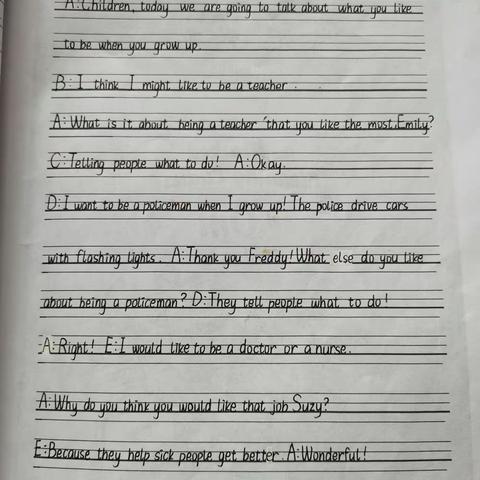 A: Children, today we are going to talk about what you like
to be when you grow up.
B: I think I might like to be a teacher.
A: What is it about being a teacher that you like the most, Emily?
C: Telling people what to do! A: Okay.
D: I want to be a policeman when I grow up! The police drive cars
with flashing lights. A: Thank you Freddy! What else do you like
about being a policeman? D: They tell people what to do!
A: Right! E: I would like to be a doctor or a nurse.
A: Why do you think you would like that job Suzy?
E: Because they help sick people get better. A: Wonderful!